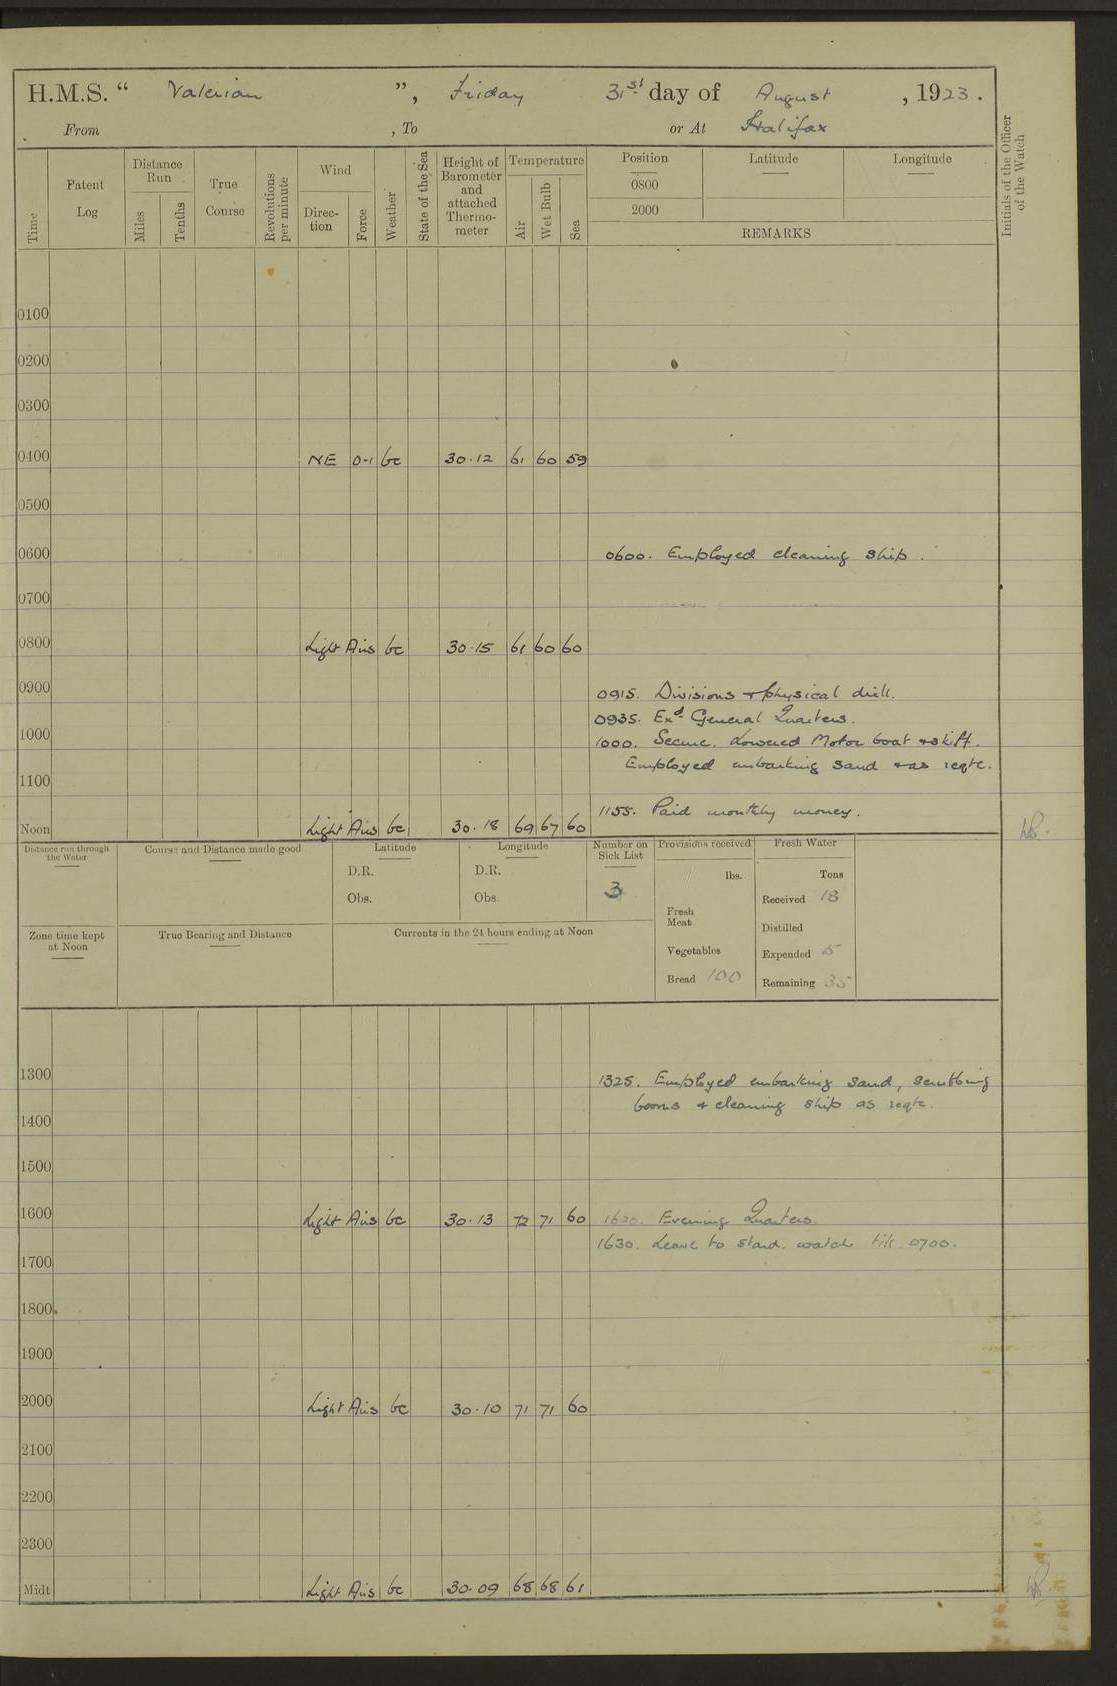 H.M.S. “ Valerian ”, Friday 31st day of August , 1923.
From , To or At Halifax
Time
Patent Log
Distance Run
Miles
Tenths
True Course
Revolutions per minute
Wind
Direc-tion
Force
Weather
State of the Sea
Height of Barometer and attached Thermo-meter
Temperature
Air
Wet Bulb
Sea
Position
0800
2000
Latitude
Longitude
REMARKS
Initials of the Officer of the Watch
0100
0200
0300
0400 NE 0-1 bc 30.12 61 60 59
0500
0600 0600. Employed cleaning ship.
0700
0800 Light Airs bc 30.15 61 60 60
0900 0915. Divisions + physical drill.
0935. Exd. General Quarters.
1000 1000. Secure. Lowered Motor boat + skiff.
Employed embarking sand + as reqte.
1100
1155. Paid monthly money.
Noon Light Airs bc 30.18 69 67 60
Distance run through the Water
Course and Distance made good
Latitude
D.R.
Obs.
Longitude
D.R.
Obs.
Number on Sick List
3
Provisions received
lbs.
Fresh Meat
Vegetables
Bread 100
Fresh Water
Tons
Received 18
Distilled
Expended 5
Remaining 35
Zone time kept at Noon
True Bearing and Distance
Currents in the 24 hours ending at Noon
1300 1325. Employed embarking sand, scrubbing
booms + cleaning ship as reqte.
1400
1500
1600 Light Airs bc 30.13 72 71 60 1620. Evening Quarters.
1630. Leave to stard. watch till 0700.
1700
1800
1900
2000 Light Airs bc 30.10 71 71 60
2100
2200
2300
Midt Light Airs bc 30.09 68 68 61